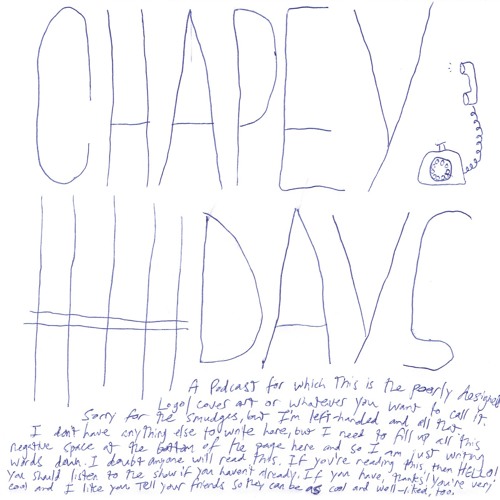 CHAPEY
DAYS
A Podcast for which This is the poorly designed
Logo/cover art or whatever you want to call it.
Sorry for the smudges, but I'm left-handed and all that
I don't have anything else to write here, but I need to fill up all this
negative space at the bottom of the page here and so I am just writing
words down. I doubt anyone will read this. If you're reading this, then HELLO!
You should listen to the show if you haven't already. If you have, thanks! You're very
cool and I like you. Tell your friends so they can be as cool and well liked, too.